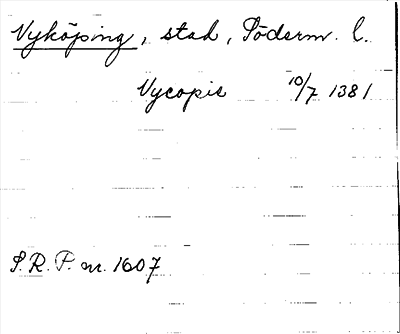 Nyköping, stad, Söderm. l.
Nycopie 10/7 1381
S.R.P. nr. 1607